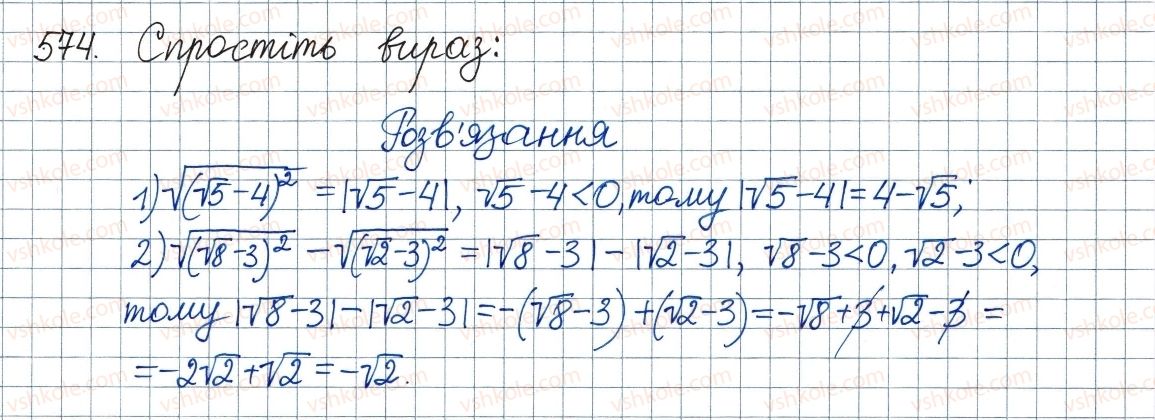 574. Спростіть вираз:
Розв'язання
1) √(√5-4)² = |√5-4|, √5-4<0, тому |√5-4|=4-√5;
2) √(√8-3)² - √(√2-3)² = |√8-3| - |√2-3|, √8-3<0, √2-3<0,
тому |√8-3|-|√2-3|=-(√8-3)+(√2-3)=-√8+3+√2-3=
=-2√2+√2=-√2.
vshkole.com